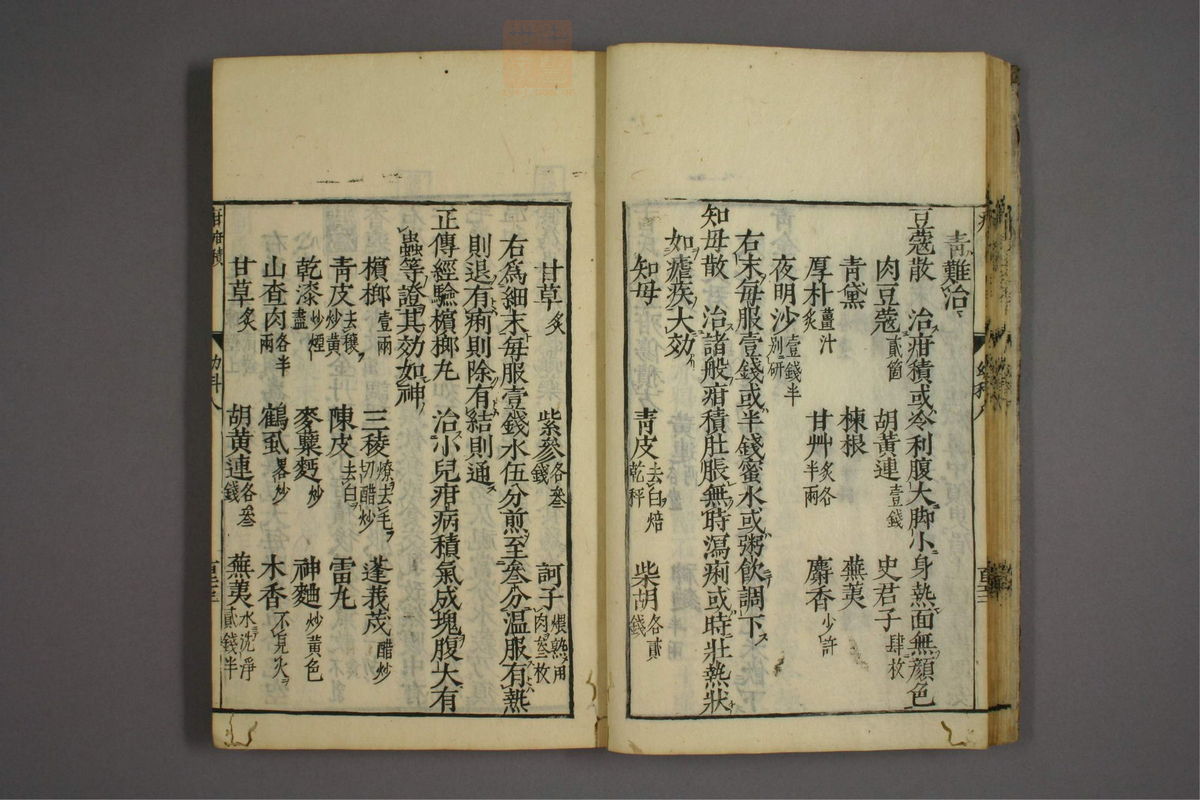 青難治
豆蔻散 治疳積或冷利腹大脚小身熱面無顔色
肉豆蔻貳箇 胡黃連壹錢 史君子肆枚
青黛 楝根 蕪荑
厚朴薑汁炙 甘艸炙各半兩 麝香少許
夜明沙壹錢半別研
右末每服壹錢或半錢蜜水或粥飲調下
知母散 治諸般疳積肚脹無時瀉痢或時壯熱狀
如瘧疾大効
知母 青皮去白焙乾秤 柴胡各貳錢
甘草炙 紫參各叁錢 訶子煨熟用肉叁枚
右為細末每服壹錢水伍分煎至叁分温服有熱
則退有痢則除有結則通
正傳經驗檳榔丸 治小兒疳病積氣成塊腹大有
蟲等證其効如神
檳榔壹兩 三稜燎去毛切醋炒 蓬莪茂醋炒
青皮去穰炒黃 陳皮去白 雷丸
乾漆炒煙盡 麥蘗麪炒 神麯炒黃色
山查肉各半兩 鶴虱畧炒 木香不見火
甘草炙 胡黃連各叁錢 蕪荑水洗淨貳錢半
幼科八